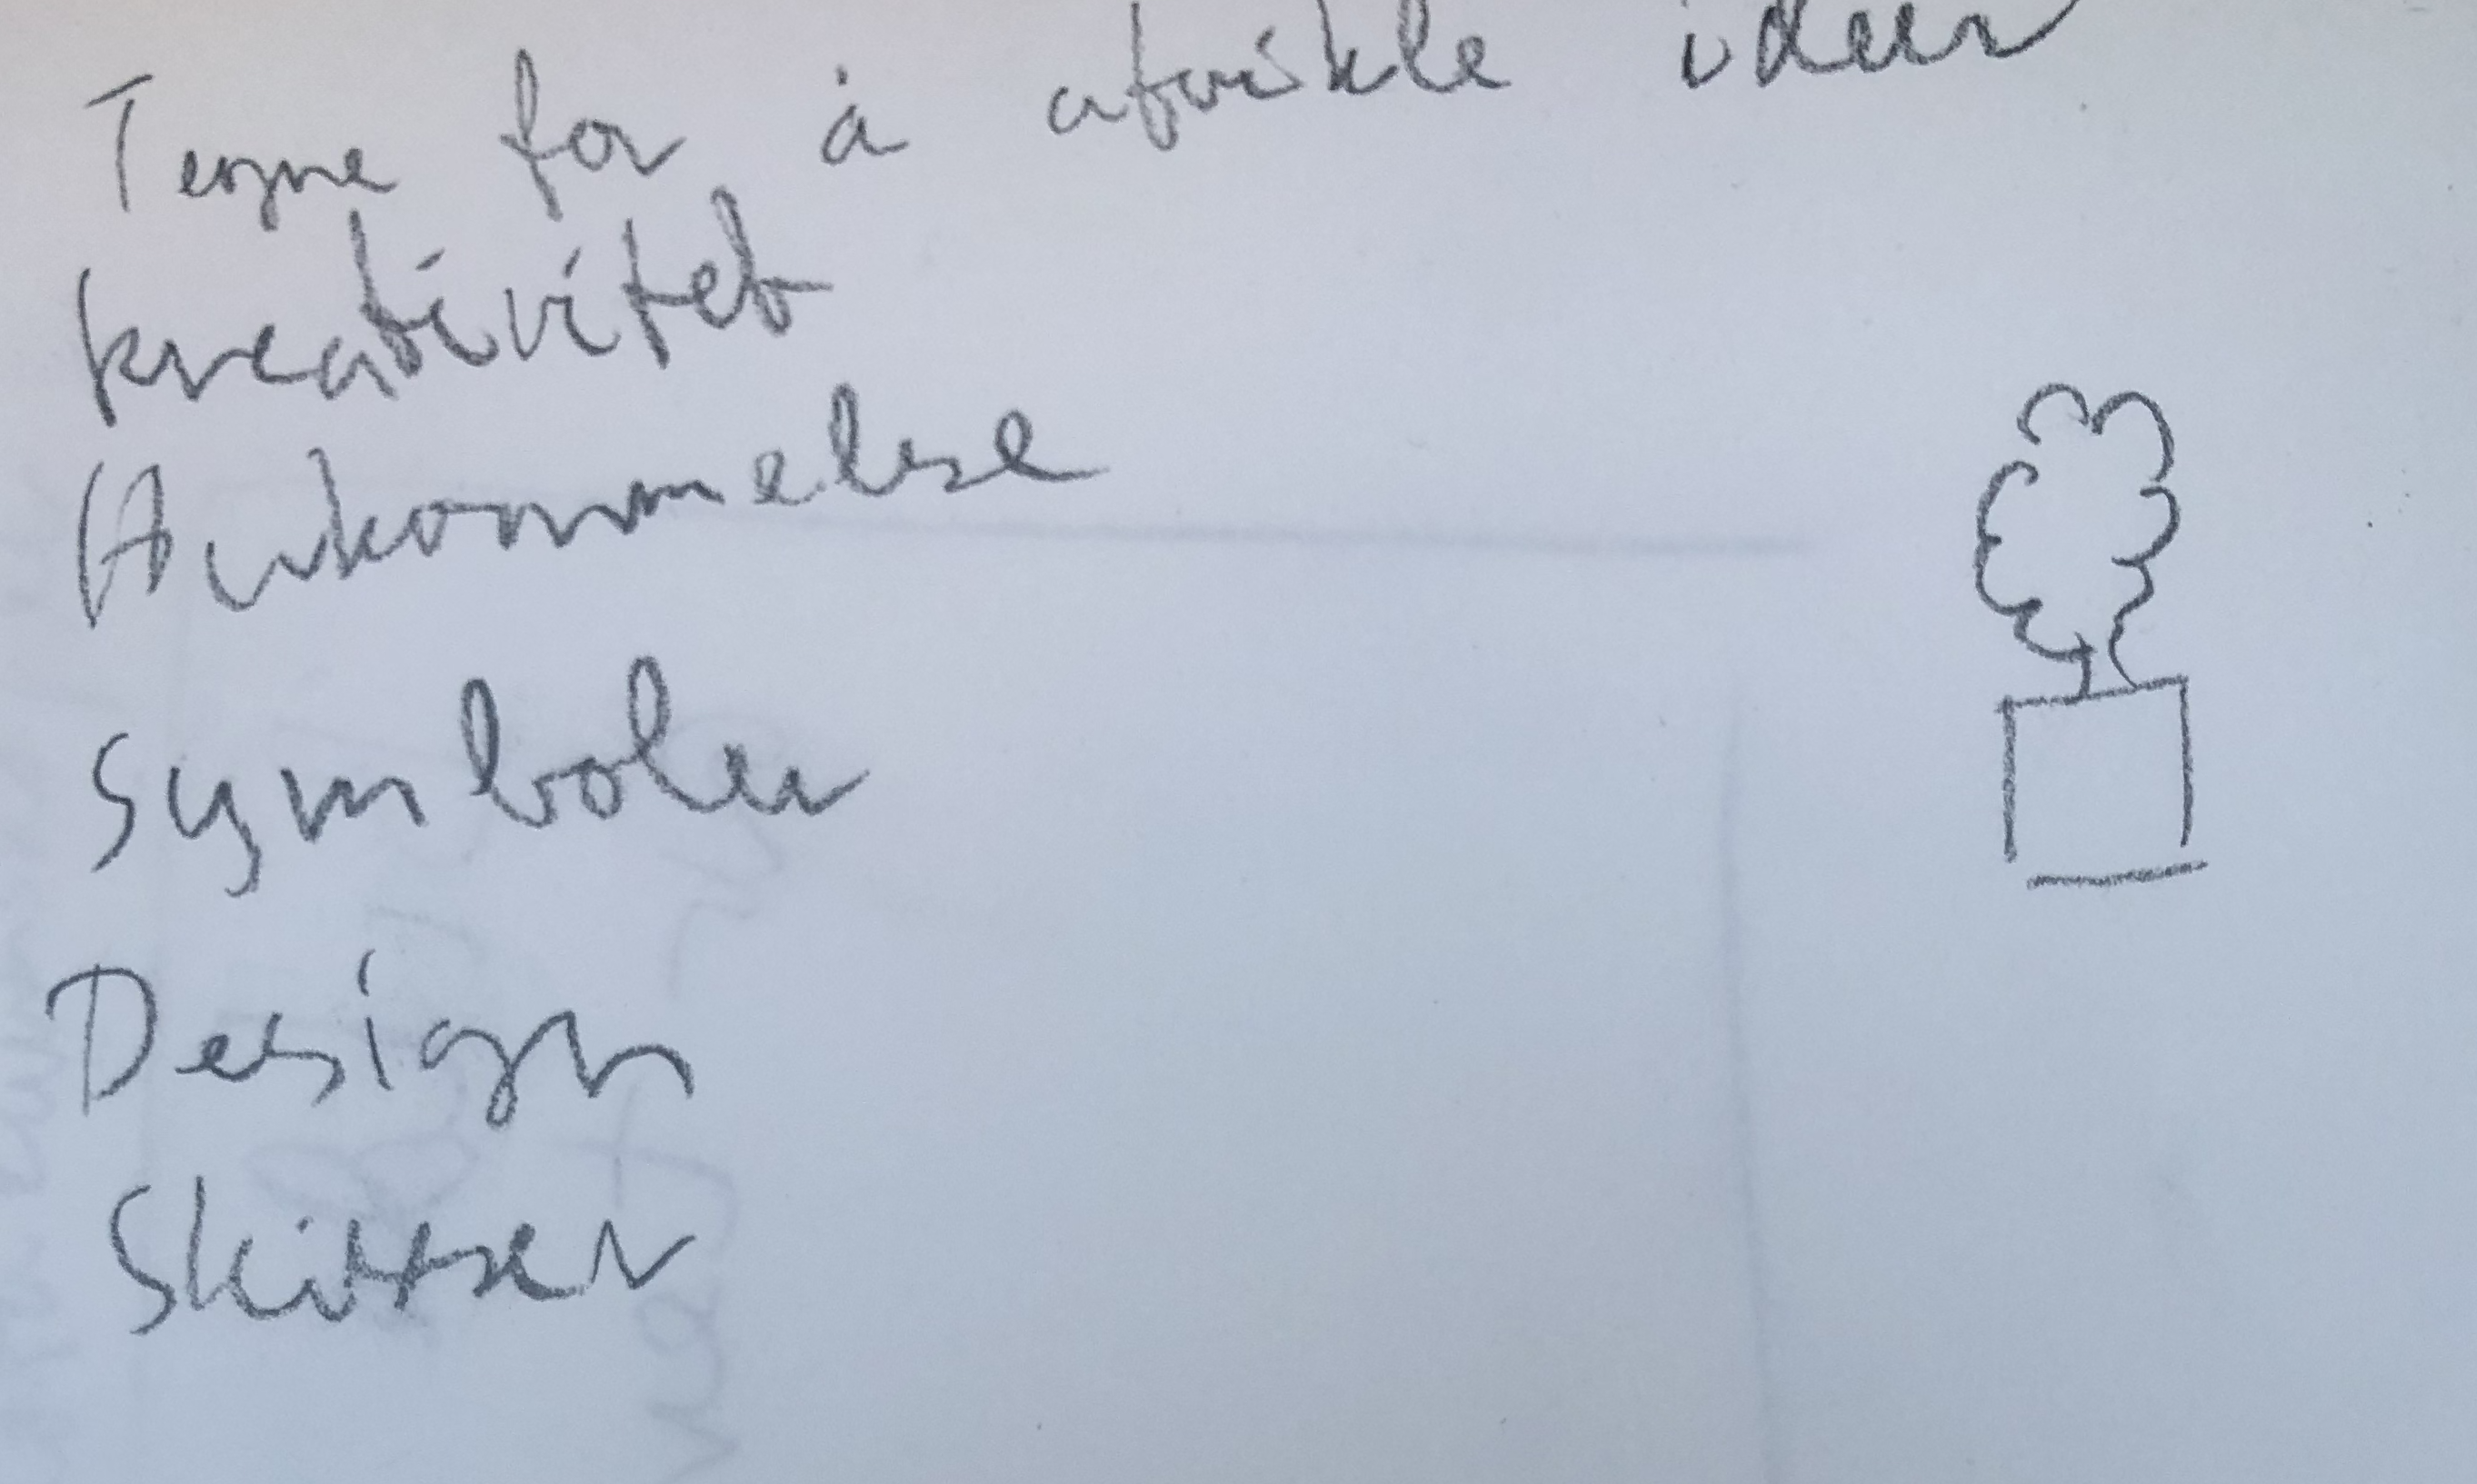 Tegne for å utvikle ideer
kreativitet
Hukommelse
Symboler
Design
Skitser